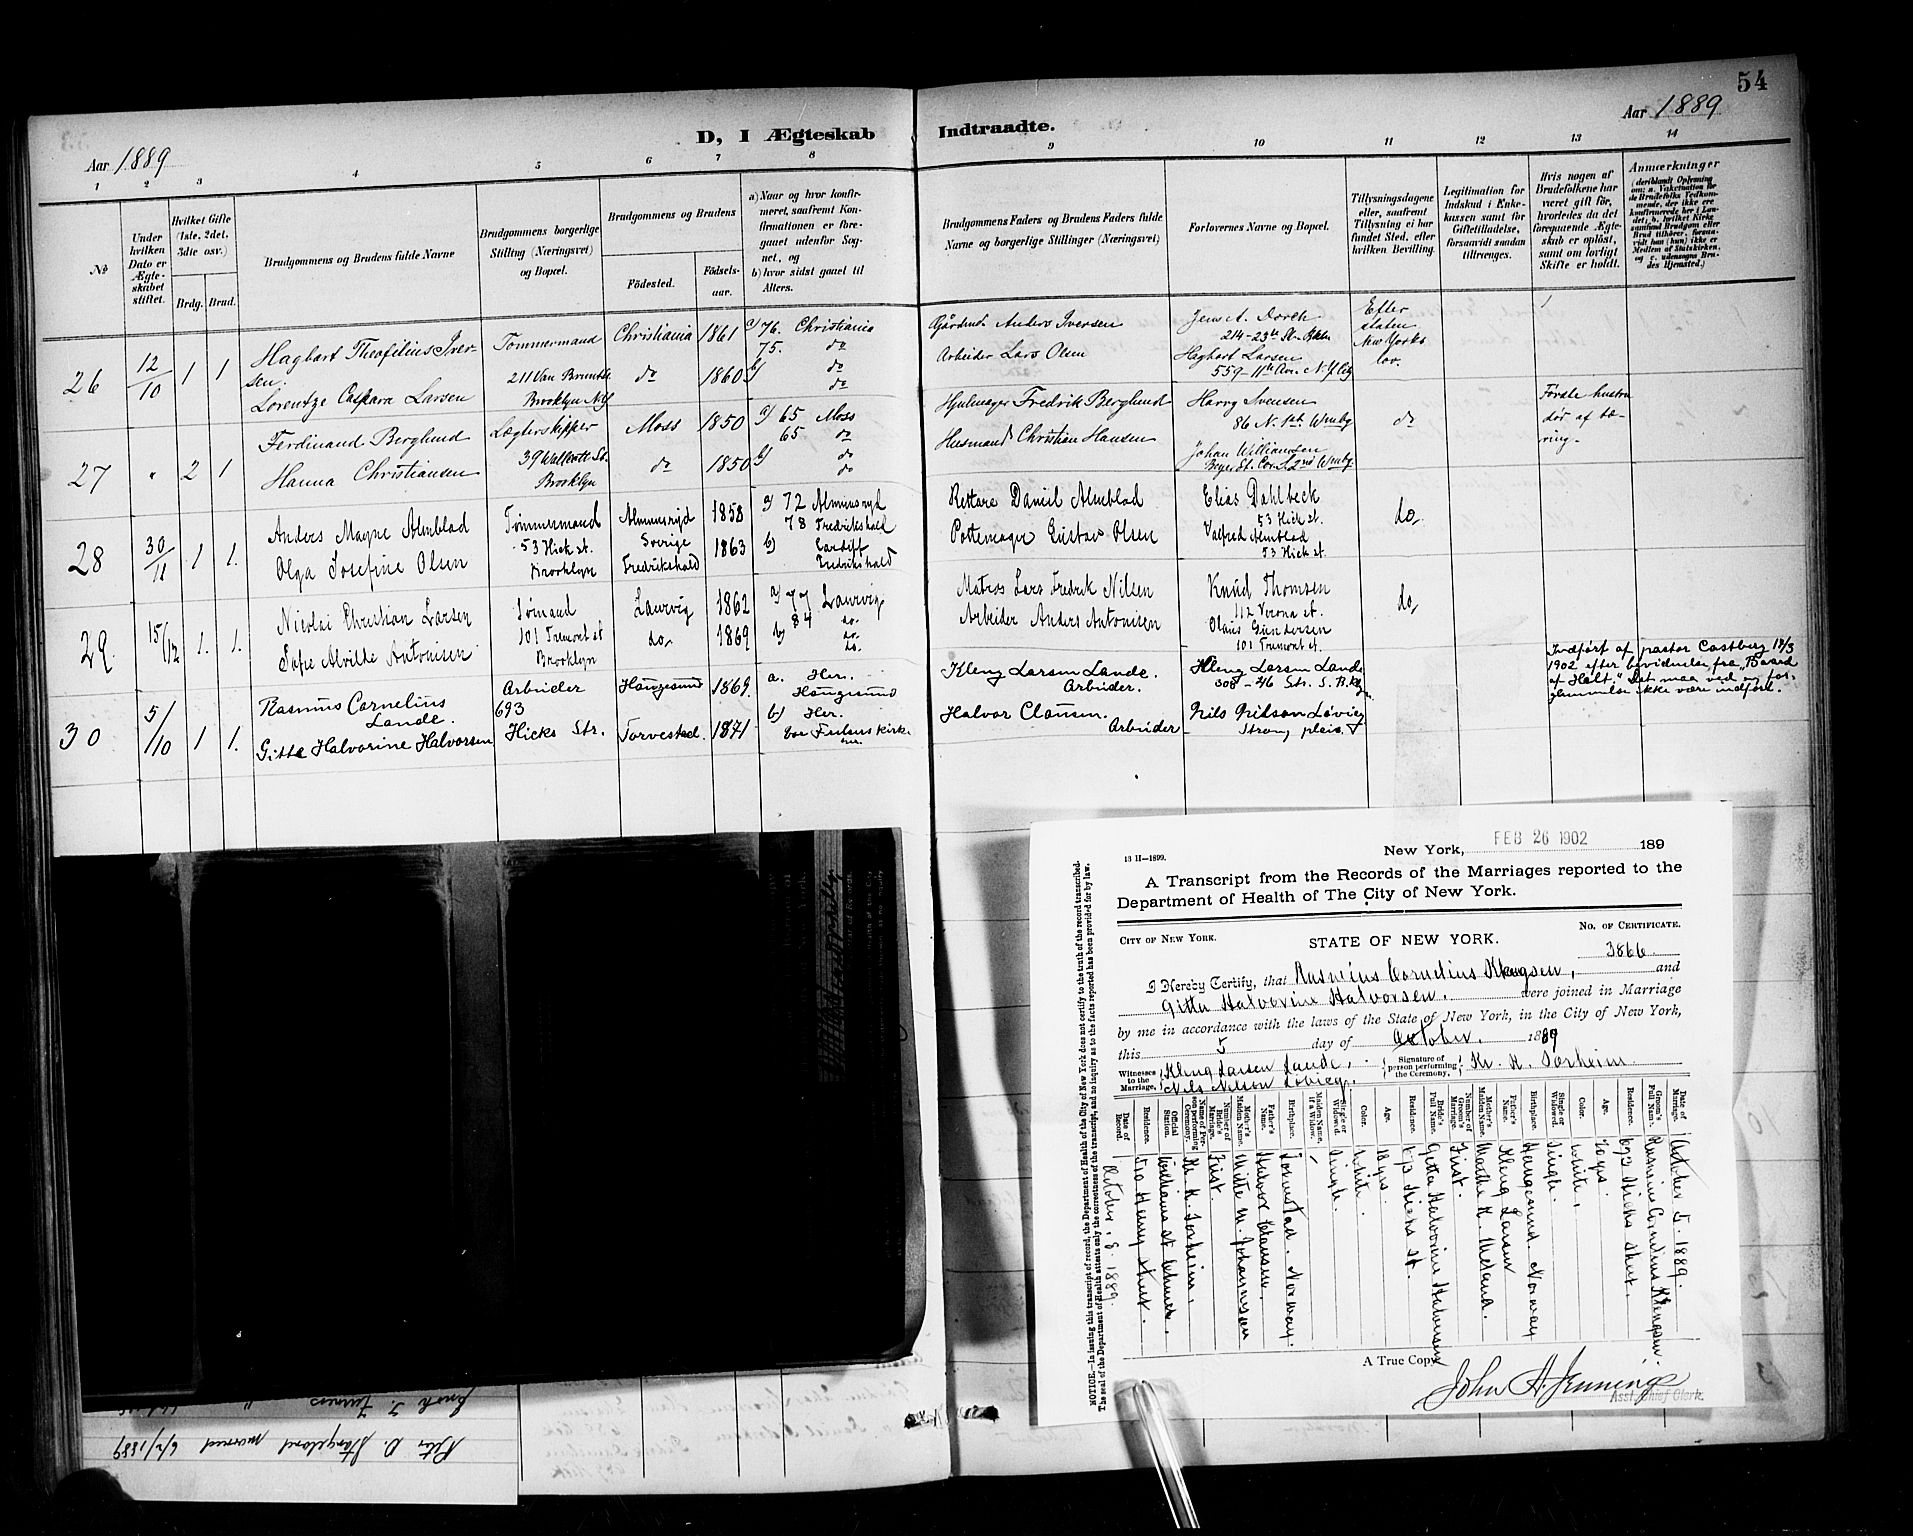 54
Aar 1889
D, I Ægteskab Indtraadte.
Aar 1889
1 2 3 4 5 6 7 8 9 10 11 12 13 14
No
Under hvilken Dato er Ægteskabet stiftet.
Hvilket Gifte (1ste, 2det, 3dte osv.)
Brdg. Brud.
Brudgommens og Brudens fulde Navne
Brudgommens borgerlige Stilling (Næringsvei) og Bopæl.
Brudgommens og Brudens
Födested.
Födsels-aar.
a) Naar og hvor konfirmeret, saafremt Konfirmationen er foregaaet udenfor Sognet, og
b) hvor sidst gaaet til Alters.
Brudgommens Faders og Brudens Faders fulde Navne og borgerlige Stillinger (Næringsvei)
Forlovernes Navne og Bopæl.
Tillysningsdagene eller, saafremt Tillysning ei har fundet Sted, efter hvilken Bevilling.
Legitimation for Indskud i Enkekassen samt for Giftetilladelse, forsaavidt saadan tiltrænges.
Hvis nogen af Brudefolkene har været gift för, hvorledes da det foregaaende Ægteskab er oplöst, samt om lovligt Skifte er holdt.
Anmærkninger
26
12/10
1 1
Hagbart Theofilius Iver-
sen.
Lorentze Caspara Larsen
Tømmermand
211 Van Brunt St.
Brooklyn N.Y.
Christiania 1861
do 1860
a) 76. Christiania
75. do
b) do
do
Gårdmd. Anders Iversen
Arbeider Lars Olsen
Jens A.
214-23rd St. Bkln
Hagbart Larsen
559-11th Av. N.Y. City
Efter
staten
New Yorks
lov.
27
"
2 1
Ferdinand Berglund
Hanna Christiansen
Lægterskipper
39 Walcott St.
Brooklyn
Moss 1850
do 1850
a) 65 Moss
65 do
b) do
do
Hjulmager Fredrik Berglund
Husmand Christian Hansen
Harry Svensen
86 N. 1st. Wmbg
Johan Williamsen
do
Første hustru
dör af bæ-
ring.
28
30/11
1 1.
Anders Magne Almblad
Olga Josefine Olsen
Tømmermand
53 Hick st.
Brooklyn
Almunsryd
Sverige
Fredrikshald
1858
1863
a) 72 Almunsryd
78 Fredrikshald
b) Cardiff
Fredrikshald
Rettare Daniel Almblad
Pottemager Gustav Olsen
Elias Dahlbeck
53 Hick st.
Valfred Almblad
53 Hick st.
do,
29.
15/12
1. 1.
Nicolai Christian Larsen
Sofie Alvilde Antonisen
Sømand
101 Tremont st
Brooklyn
Laurvig 1862
do, 1869
a) 77 Laurvig
84 do.
b) do.
do.
Matros Lars Fredrik Nilsen
Arbeider Anders Antonisen
Knud Thomsen
112 Verona st.
Olaus Gundersen
101 Tremont st.
do,
30
5/10
1 1.
Rasmus Cornelius
Lande.
Gitta Halvorine Halvorsen
Arbeider
693
Hicks Str.
Haugesund 1869.
Torvestad. 1871
a. Her.
Haugesund
b) Her.
Kleng Larsen Lande.
Arbeider.
Halvor Clausen.
Arbeider
Kleng Larsen Lande
308-46 Str. S. Bklyn.
Nils Nilson Løvieg
Strong place.
Indført af pastor Castberg 18/3
1902 efter bevidnelse fra "Board
of Helt." Det maa ved en for-
glemmelse ikke være indført.
13 H—1899.
New York, FEB 26 1902 189
A Transcript from the Records of the Marriages reported to the
Department of Health of The City of New York.
CITY OF NEW YORK. STATE OF NEW YORK. NO. OF CERTIFICATE.
3866.
I Hereby Certify, that Rasmus Cornelius Klengsen, and
Gitta Halvorine Halvorsen. were joined in Marriage
by me in accordance with the laws of the State of New York, in the City of New York,
this 5 day of October, 1889
Witnesses to the Marriage, Kleng Larsen Lande,
Nils Nelson Lovieg.
Signature of person performing the Ceremony, Kr. K. Sørheim.
Date of Marriage. October 5. 1889.
Groom's Full Name. Rasmus Cornelius Klengsen.
Residence. 693 Hicks Street.
Age. 20 yrs.
Color. White.
Single or Widowed. Single.
Birthplace. Haugesund. Norway
Father's Name. Kleng Larsen
Mother's Maiden Name. Marthe K. Meland.
Number of Groom's Marriage. First.
Bride's Full Name. Gitta Halvorine Halvorsen
Residence. 693 Hicks St.
Age. 18 yrs.
Color. White.
Single or Widowed. Single.
Maiden Name, if a Widow. /
Birthplace. Torvestad. Norway.
Father's Name. Halvor Clausen.
Mother's Maiden Name. Mette M. Johannssen
Number of Bride's Marriage. First.
Name of Person performing Ceremony. Kr. K. Sørheim.
Official Station. Williams st Church.
Residence. Henry Street.
Date of Record. October. 8. 1889.
NOTICE.—In issuing this transcript of record, the Department of Health of the City of New York does not certify to the truth of the record transcribed.
The seal of the Department of Health attests only the correctness of the transcript, and no inquiry as to the facts reported has been provided for by law.
A True Copy
John A. Jennings
Asst. Chief Clerk.
Peter O. Stangeland married 6/2/1889